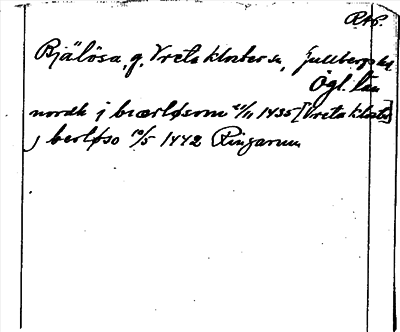 RAP.
Bjälösa, g. Vreta klosters sn, Gullbergs hd
Ögl. län
nordh j biærløsom 21/11 1435 [Vreta kloster]
j berløso 10/5 1442 Ringarum